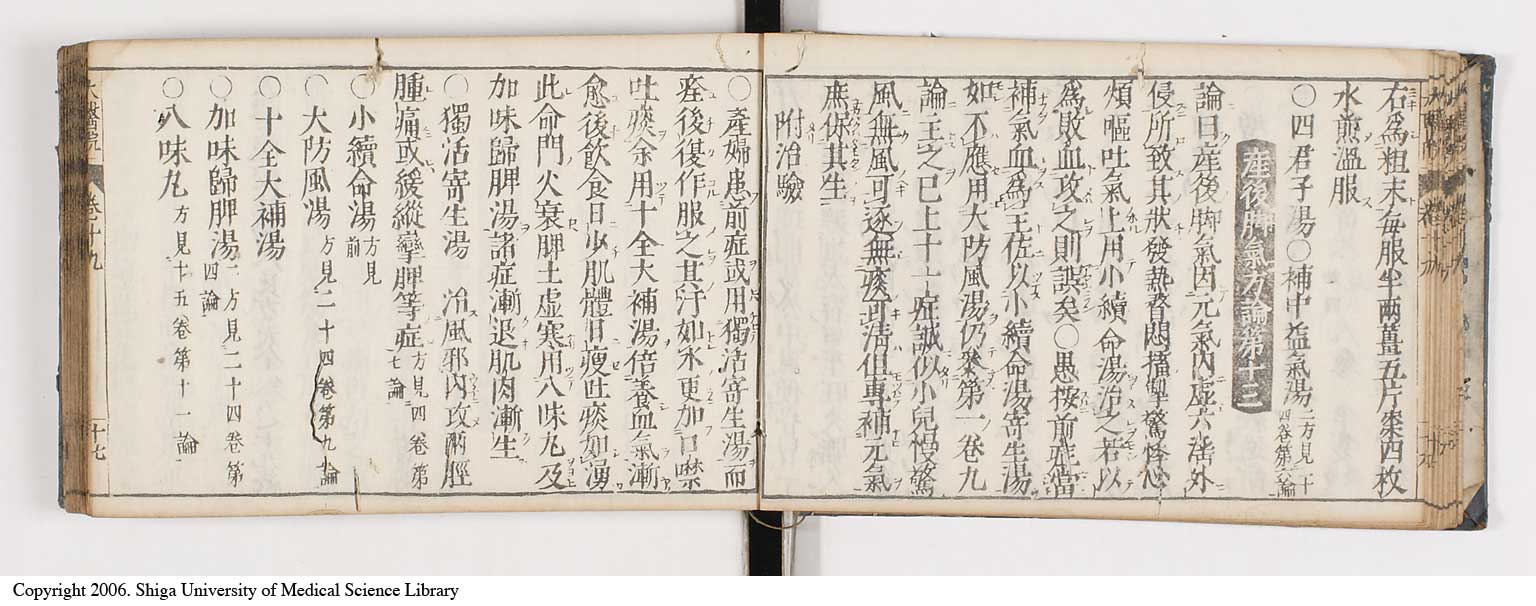 右爲粗末每服半兩薑五片棗四枚
水煎溫服
〇四君子湯〇補中益氣湯二方見二十四卷第三論
産後脚氣方論第十三
論曰産後脚氣因元氣內虛六淫外
侵所致其狀發熱瞀悶搐搦驚悸心
煩嘔吐氣上用小續命湯治之若以
爲敗血攻之則誤矣〇愚按前症當
補氣血爲主佐以小續命湯寄生湯
如不應用大防風湯仍叅第一卷九
論主之已上十一症誠似小兒慢驚
風無風可逐無痰可淸但專補元氣
庶保其生
附治驗
〇産婦患前症或用獨活寄生湯而
痊後復作服之其汗如水更加口噤
吐痰余用十全大補湯倍養血氣漸
愈後飮食日少肌體日瘦吐痰如湧
此命門火衰脾土虛寒用八味丸及
加味歸脾湯諸症漸退肌肉漸生
〇獨活寄生湯 治風邪內攻兩脛
腫痛或緩縱攣脾等症方見四卷第七論
〇小續命湯方見前
〇大防風湯方見二十四卷第九十論
〇十全大補湯
〇加味歸脾湯二方見二十四卷第四論
〇八味丸方見十五卷第十一論
卷十九
十七
Copyright 2006. Shiga University of Medical Science Library